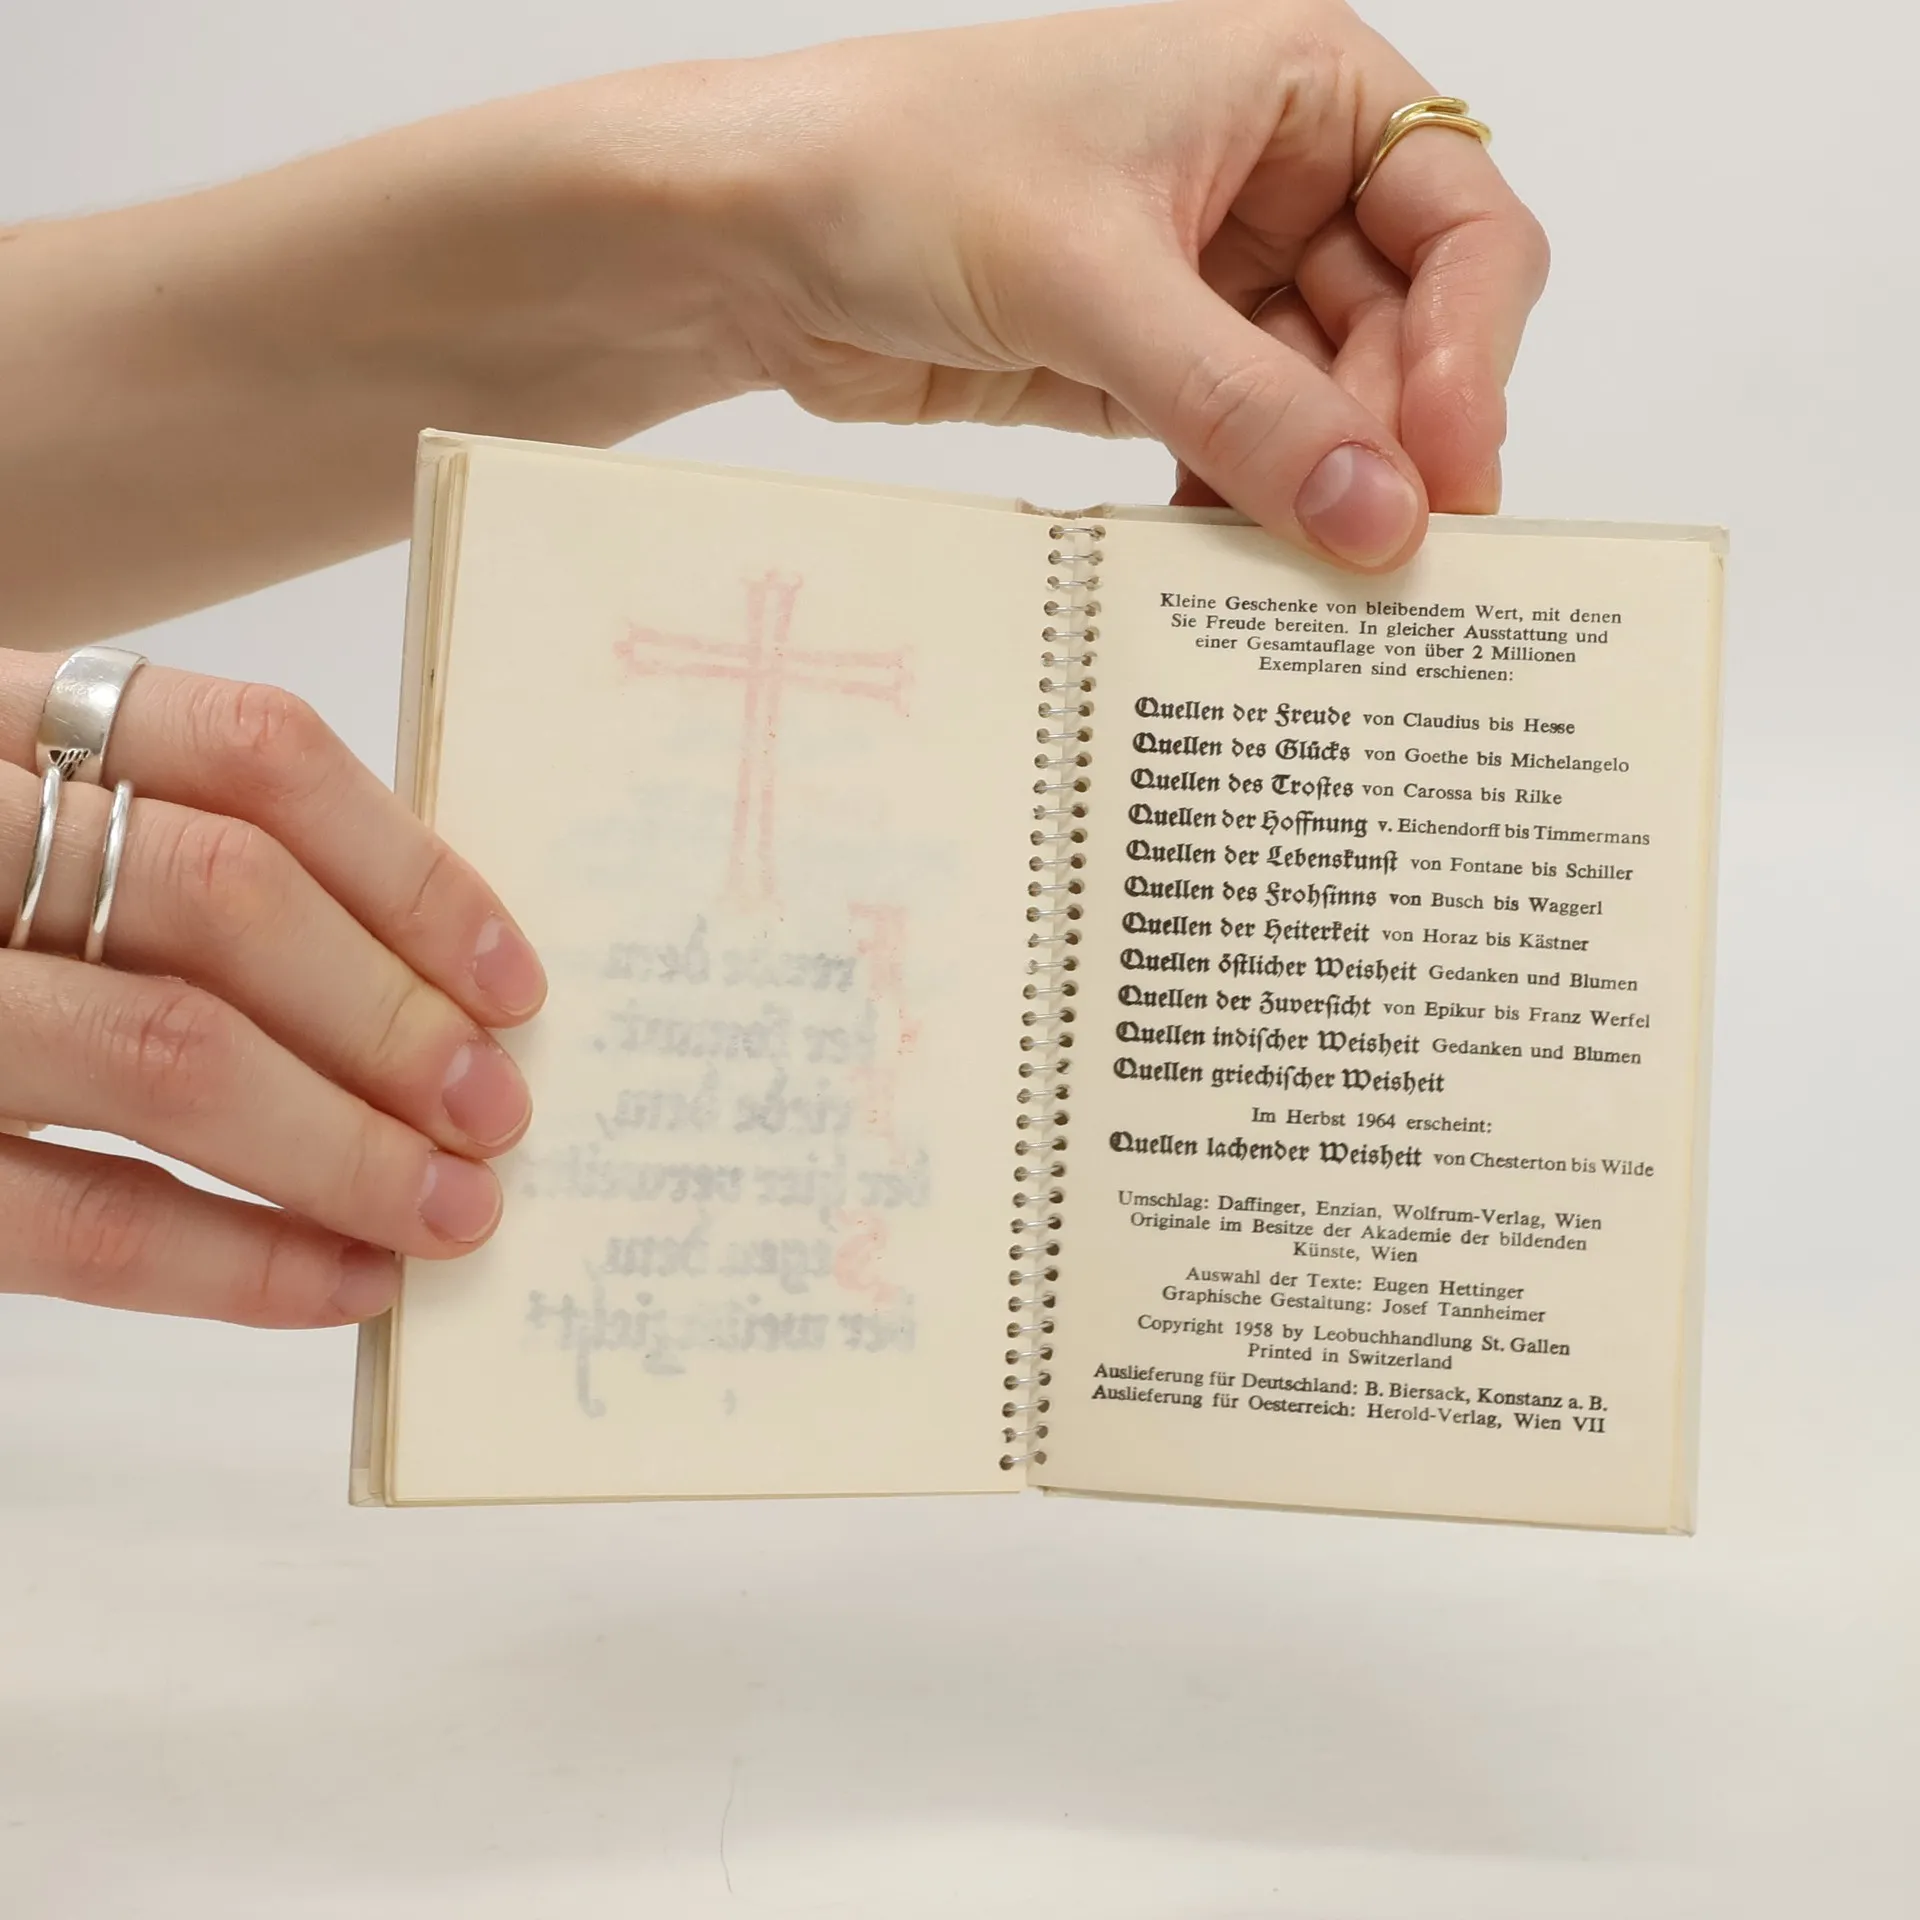 Kleine Geschenke von bleibendem Wert, mit denen
Sie Freude bereiten. In gleicher Ausstattung und
einer Gesamtauflage von über 2 Millionen
Exemplaren sind erschienen:
Quellen der Freude von Claudius bis Hesse
Quellen des Glücks von Goethe bis Michelangelo
Quellen des Troſtes von Carossa bis Rilke
Quellen der Hoffnung v. Eichendorff bis Timmermans
Quellen der Lebenskunſt von Fontane bis Schiller
Quellen des Frohſinns von Busch bis Waggerl
Quellen der Heiterkeit von Horaz bis Kästner
Quellen öſtlicher Weisheit Gedanken und Blumen
Quellen der Zuverſicht von Epikur bis Franz Werfel
Quellen indiſcher Weisheit Gedanken und Blumen
Quellen griechiſcher Weisheit
Im Herbst 1964 erscheint:
Quellen lachender Weisheit von Chesterton bis Wilde
Umschlag: Daffinger, Enzian, Wolfrum-Verlag, Wien
Originale im Besitze der Akademie der bildenden
Künste, Wien
Auswahl der Texte: Eugen Hettinger
Graphische Gestaltung: Josef Tannheimer
Copyright 1958 by Leobuchhandlung St. Gallen
Printed in Switzerland
Auslieferung für Deutschland: B. Biersack, Konstanz a. B.
Auslieferung für Oesterreich: Herold-Verlag, Wien VII